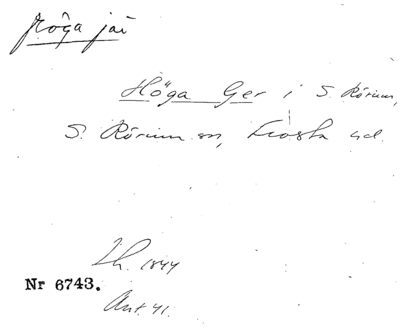 höga jär
Höga Ger i S. Rörum,
S. Rörum sn, Frosta hd.
Lh. 1844
Nr 6743.
Ant. 41.